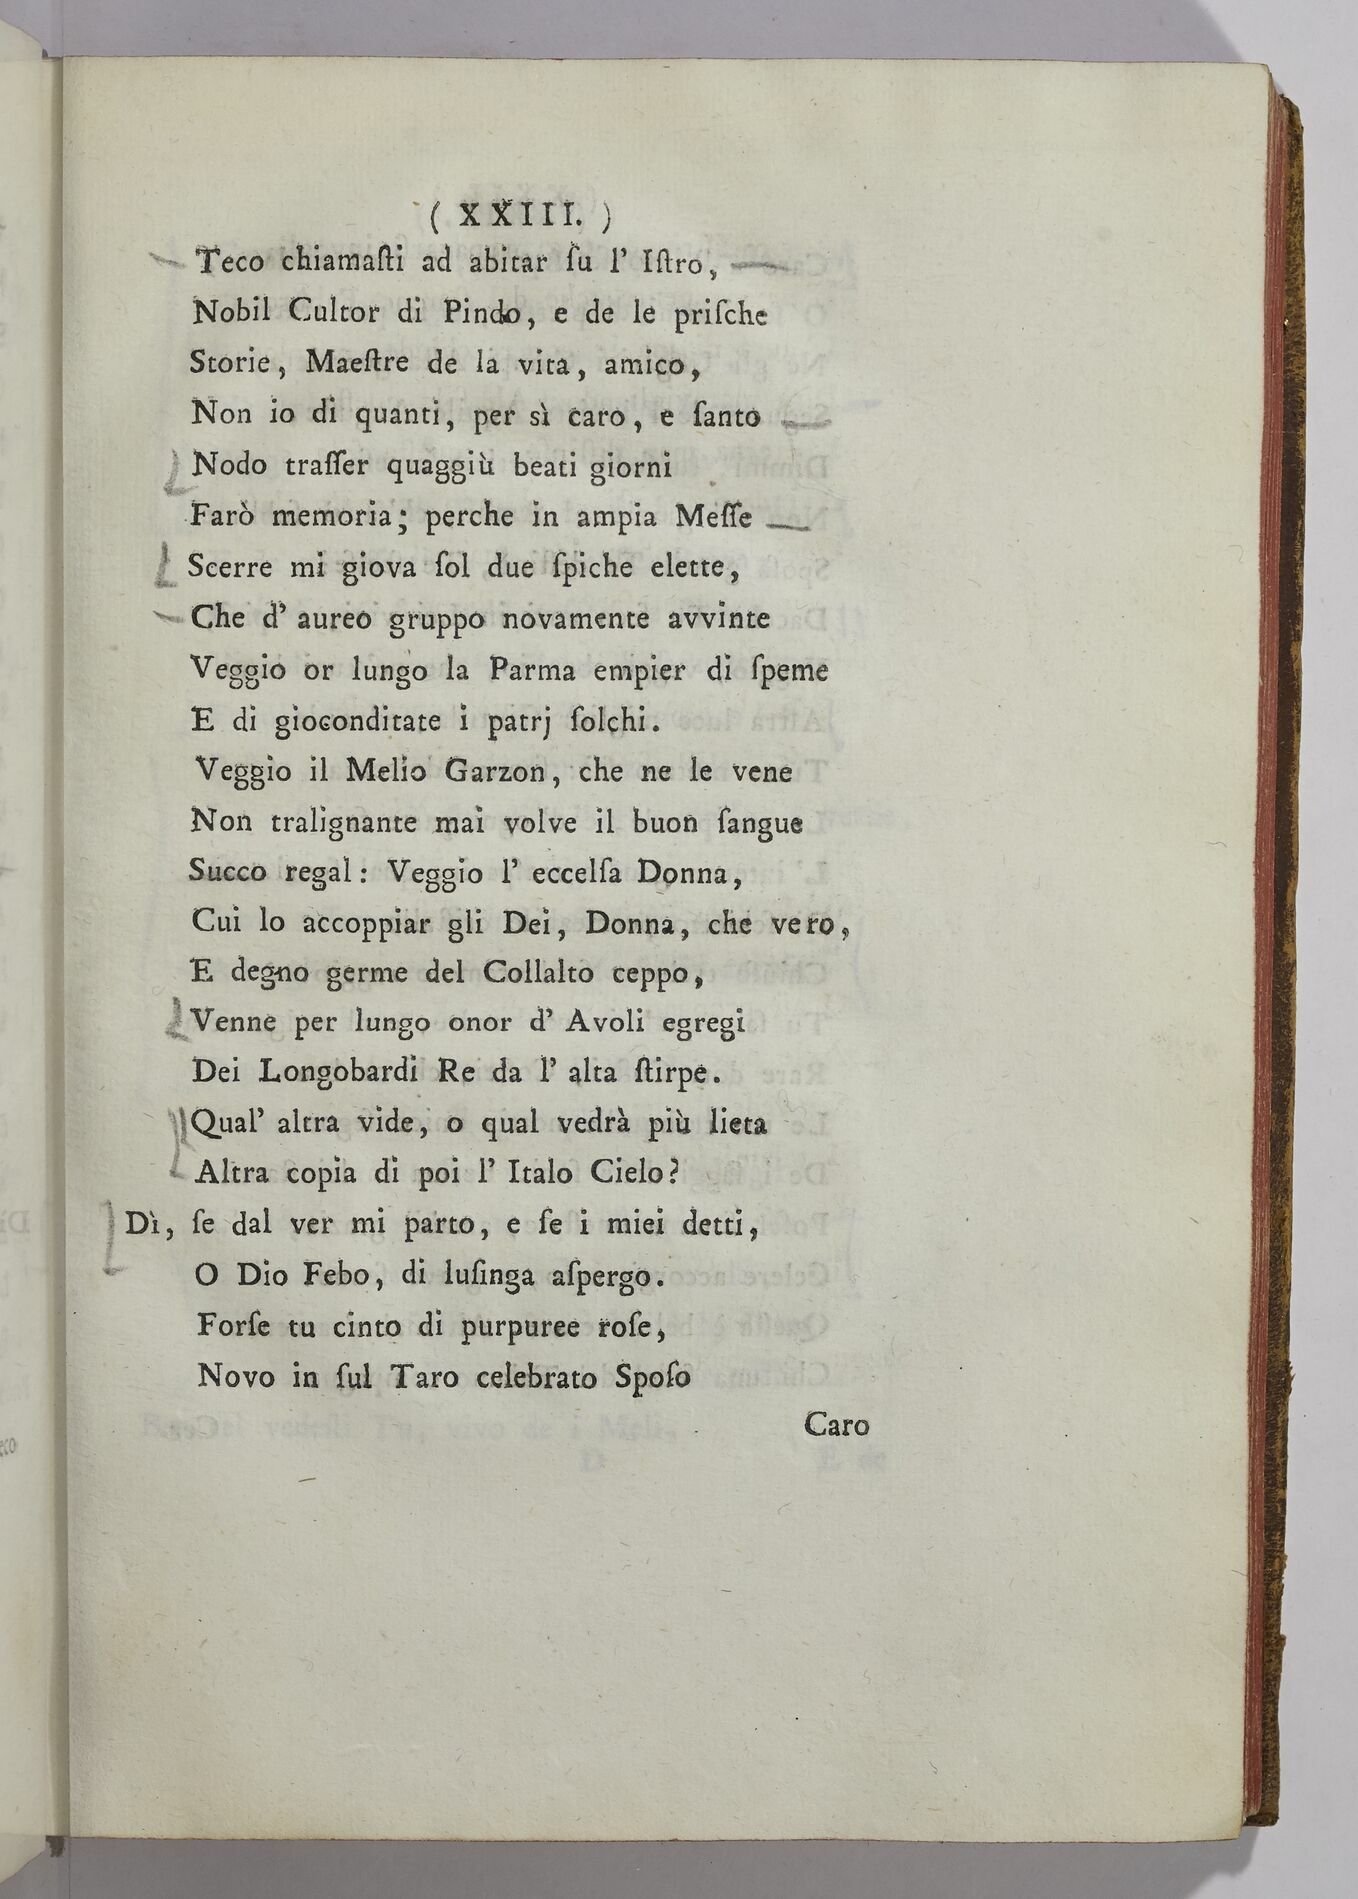 ( XXIII. )
Teco chiamaſti ad abitar ſu l' Iſtro,
Nobil Cultor di Pindo, e de le priſche
Storie, Maeſtre de la vita, amico,
Non io di quanti, per sì caro, e ſanto
Nodo traſſer quaggiù beati giorni
Farò memoria; perche in ampia Meſſe
Scerre mi giova ſol due ſpiche elette,
Che d' aureo gruppo novamente avvinte
Veggio or lungo la Parma empier di ſpeme
E di gioconditate i patrj ſolchi.
Veggio il Melio Garzon, che ne le vene
Non tralignante mai volve il buon ſangue
Succo regal: Veggio l' eccelſa Donna,
Cui lo accoppiar gli Dei, Donna, che vero,
E degno germe del Collalto ceppo,
Venne per lungo onor d' Avoli egregi
Dei Longobardi Re da l' alta ſtirpe.
Qual' altra vide, o qual vedrà più lieta
Altra copia di poi l' Italo Cielo?
Dì, ſe dal ver mi parto, e ſe i miei detti,
O Dio Febo, di luſinga aſpergo.
Forſe tu cinto di purpuree roſe,
Novo in ſul Taro celebrato Spoſo
Caro